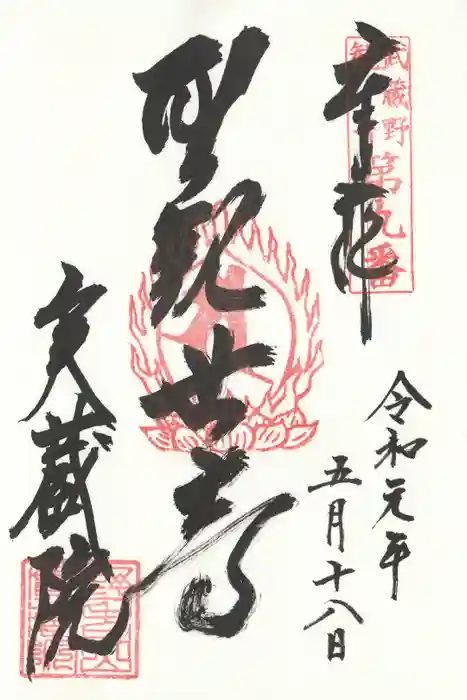 奉拝
武蔵野
観音
第九番
令和元年
五月十八日
聖観世音
実蔵院